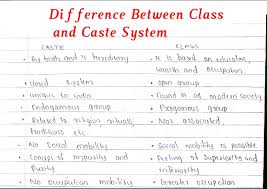 Difference Between Class
and Caste System
CASTE
CLASS
• By birth and is hereditary
• It is based on education,
wealth and occupation
• closed system
• open group
• unique to India
• Found in all modern society
• Endogamous group
• Exogamous group
• Related to religion rituals,
traditions etc
• Not associated.
• No social mobility
• Social mobility is possible
• Concept of impurity and
Purity
• Feeling of Superiority and
inferiority
• No occupation mobility
• Greater occupation